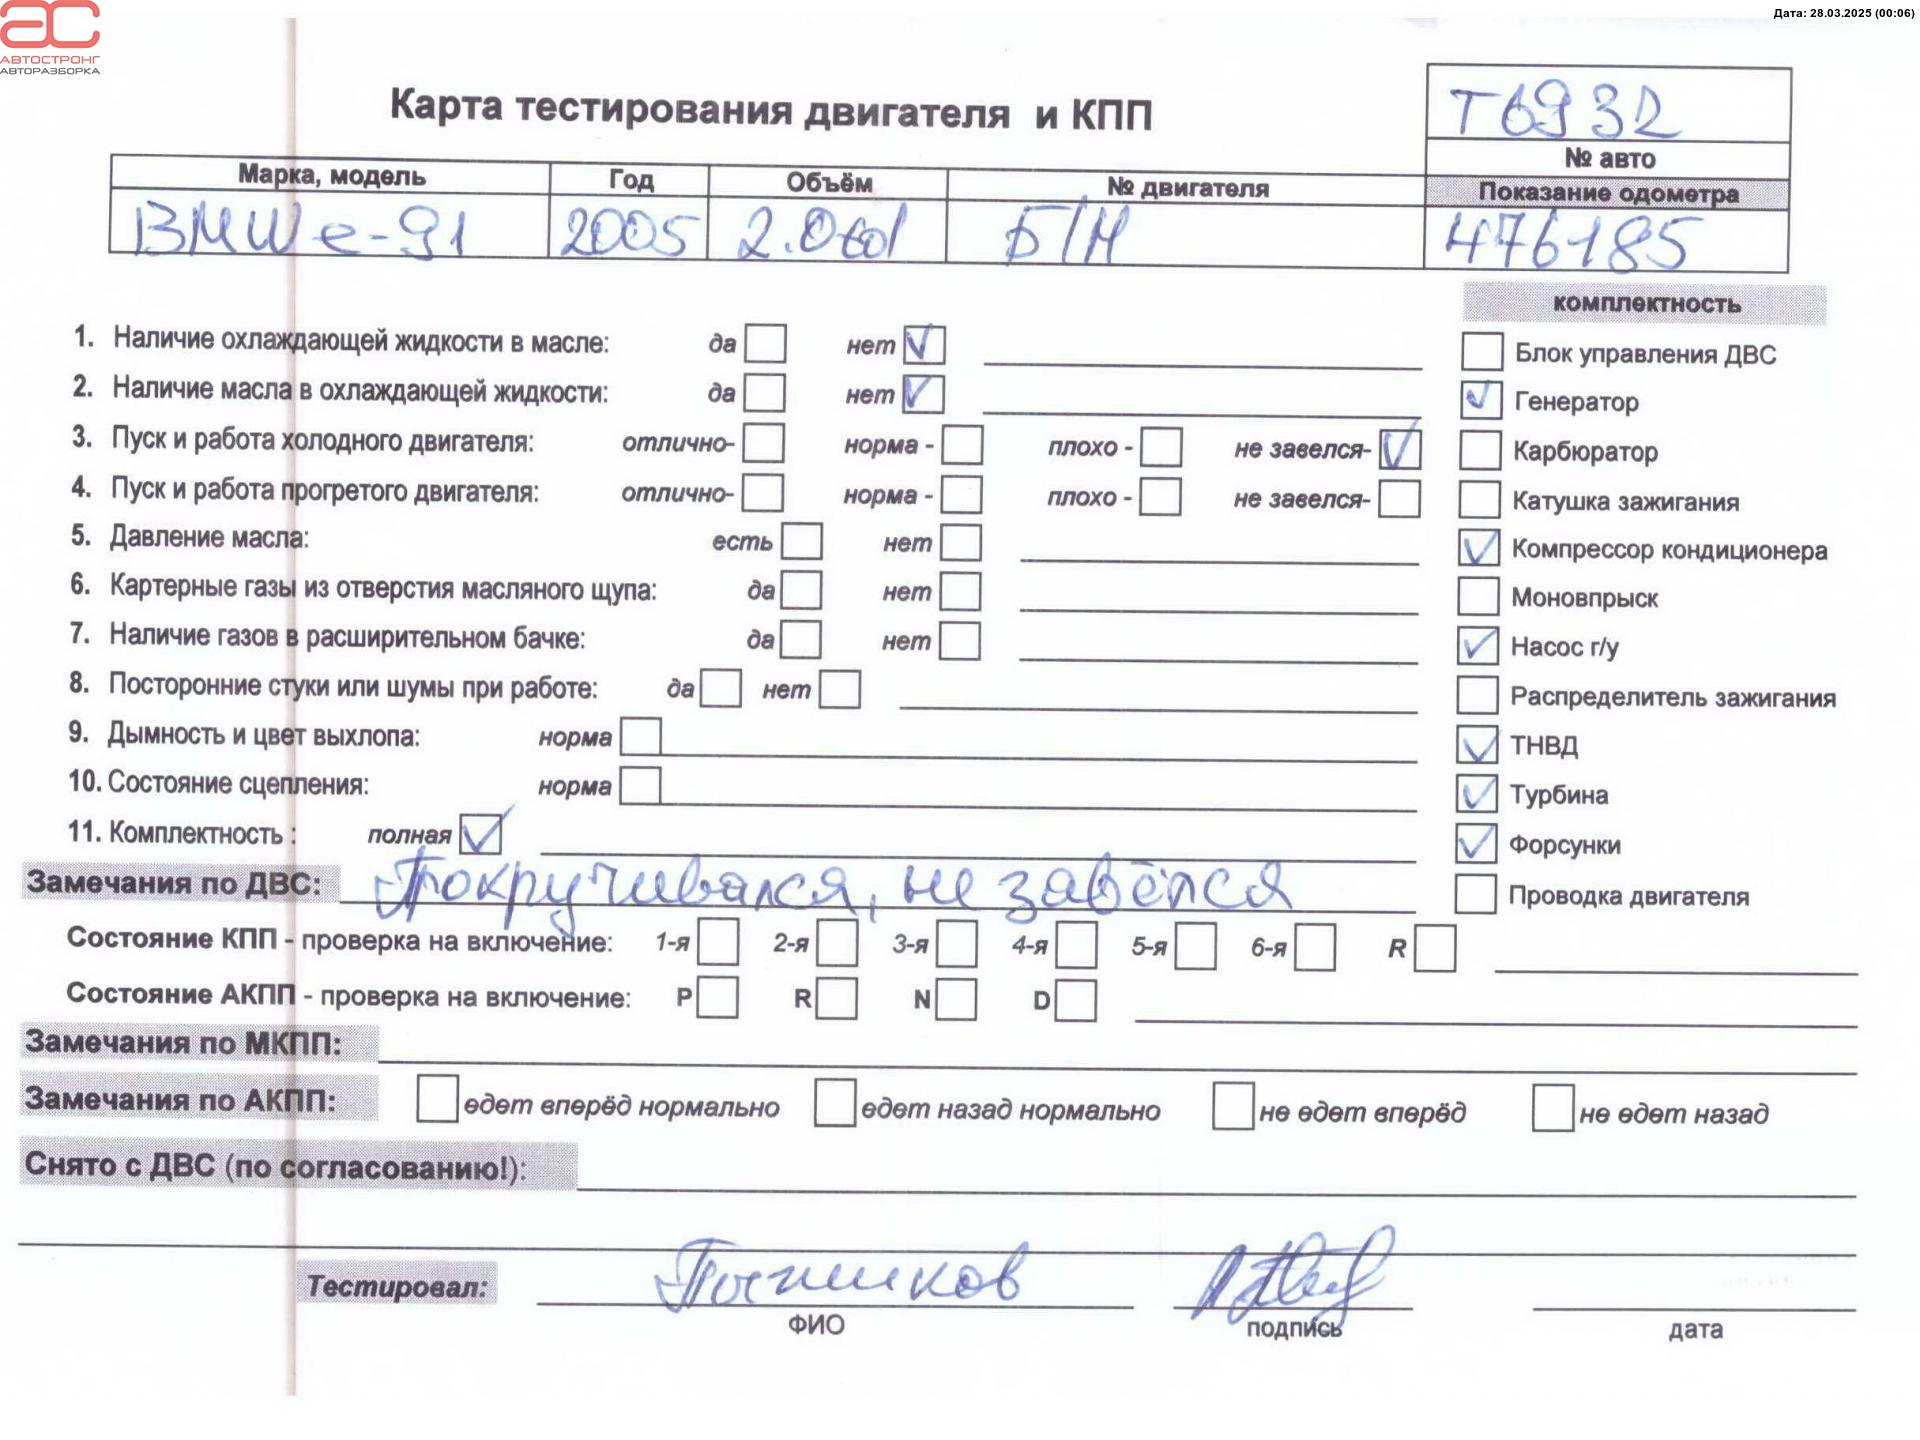 Дата: 28.03.2025 (00:06)
АС
АВТОСТРОНГ
АВТОРАЗБОРКА
Карта тестирования двигателя и КПП
Т6932
№ авто
Марка, модель Год Объём № двигателя Показание одометра
BMW e-91 2005 Б/Н 476185
комплектность
1. Наличие охлаждающей жидкости в масле: да нет
Блок управления ДВС
2. Наличие масла в охлаждающей жидкости: да нет
Генератор
3. Пуск и работа холодного двигателя: отлично- норма - плохо - не завелся-
Карбюратор
4. Пуск и работа прогретого двигателя: отлично- норма - плохо - не завелся-
Катушка зажигания
5. Давление масла: есть нет
Компрессор кондиционера
6. Картерные газы из отверстия масляного щупа: да нет
Моновпрыск
7. Наличие газов в расширительном бачке: да нет
Насос г/у
8. Посторонние стуки или шумы при работе: да нет
Распределитель зажигания
9. Дымность и цвет выхлопа: норма
ТНВД
10. Состояние сцепления: норма
Турбина
11. Комплектность : полная
Форсунки
Замечания по ДВС: Покручивался, не завёлся
Проводка двигателя
Состояние КПП - проверка на включение: 1-я 2-я 3-я 4-я 5-я 6-я R
Состояние АКПП - проверка на включение: P R N D
Замечания по МКПП:
Замечания по АКПП: едет вперёд нормально едет назад нормально не едет вперёд не едет назад
Снято с ДВС (по согласованию!):
Тестировал:
ФИО подпись дата